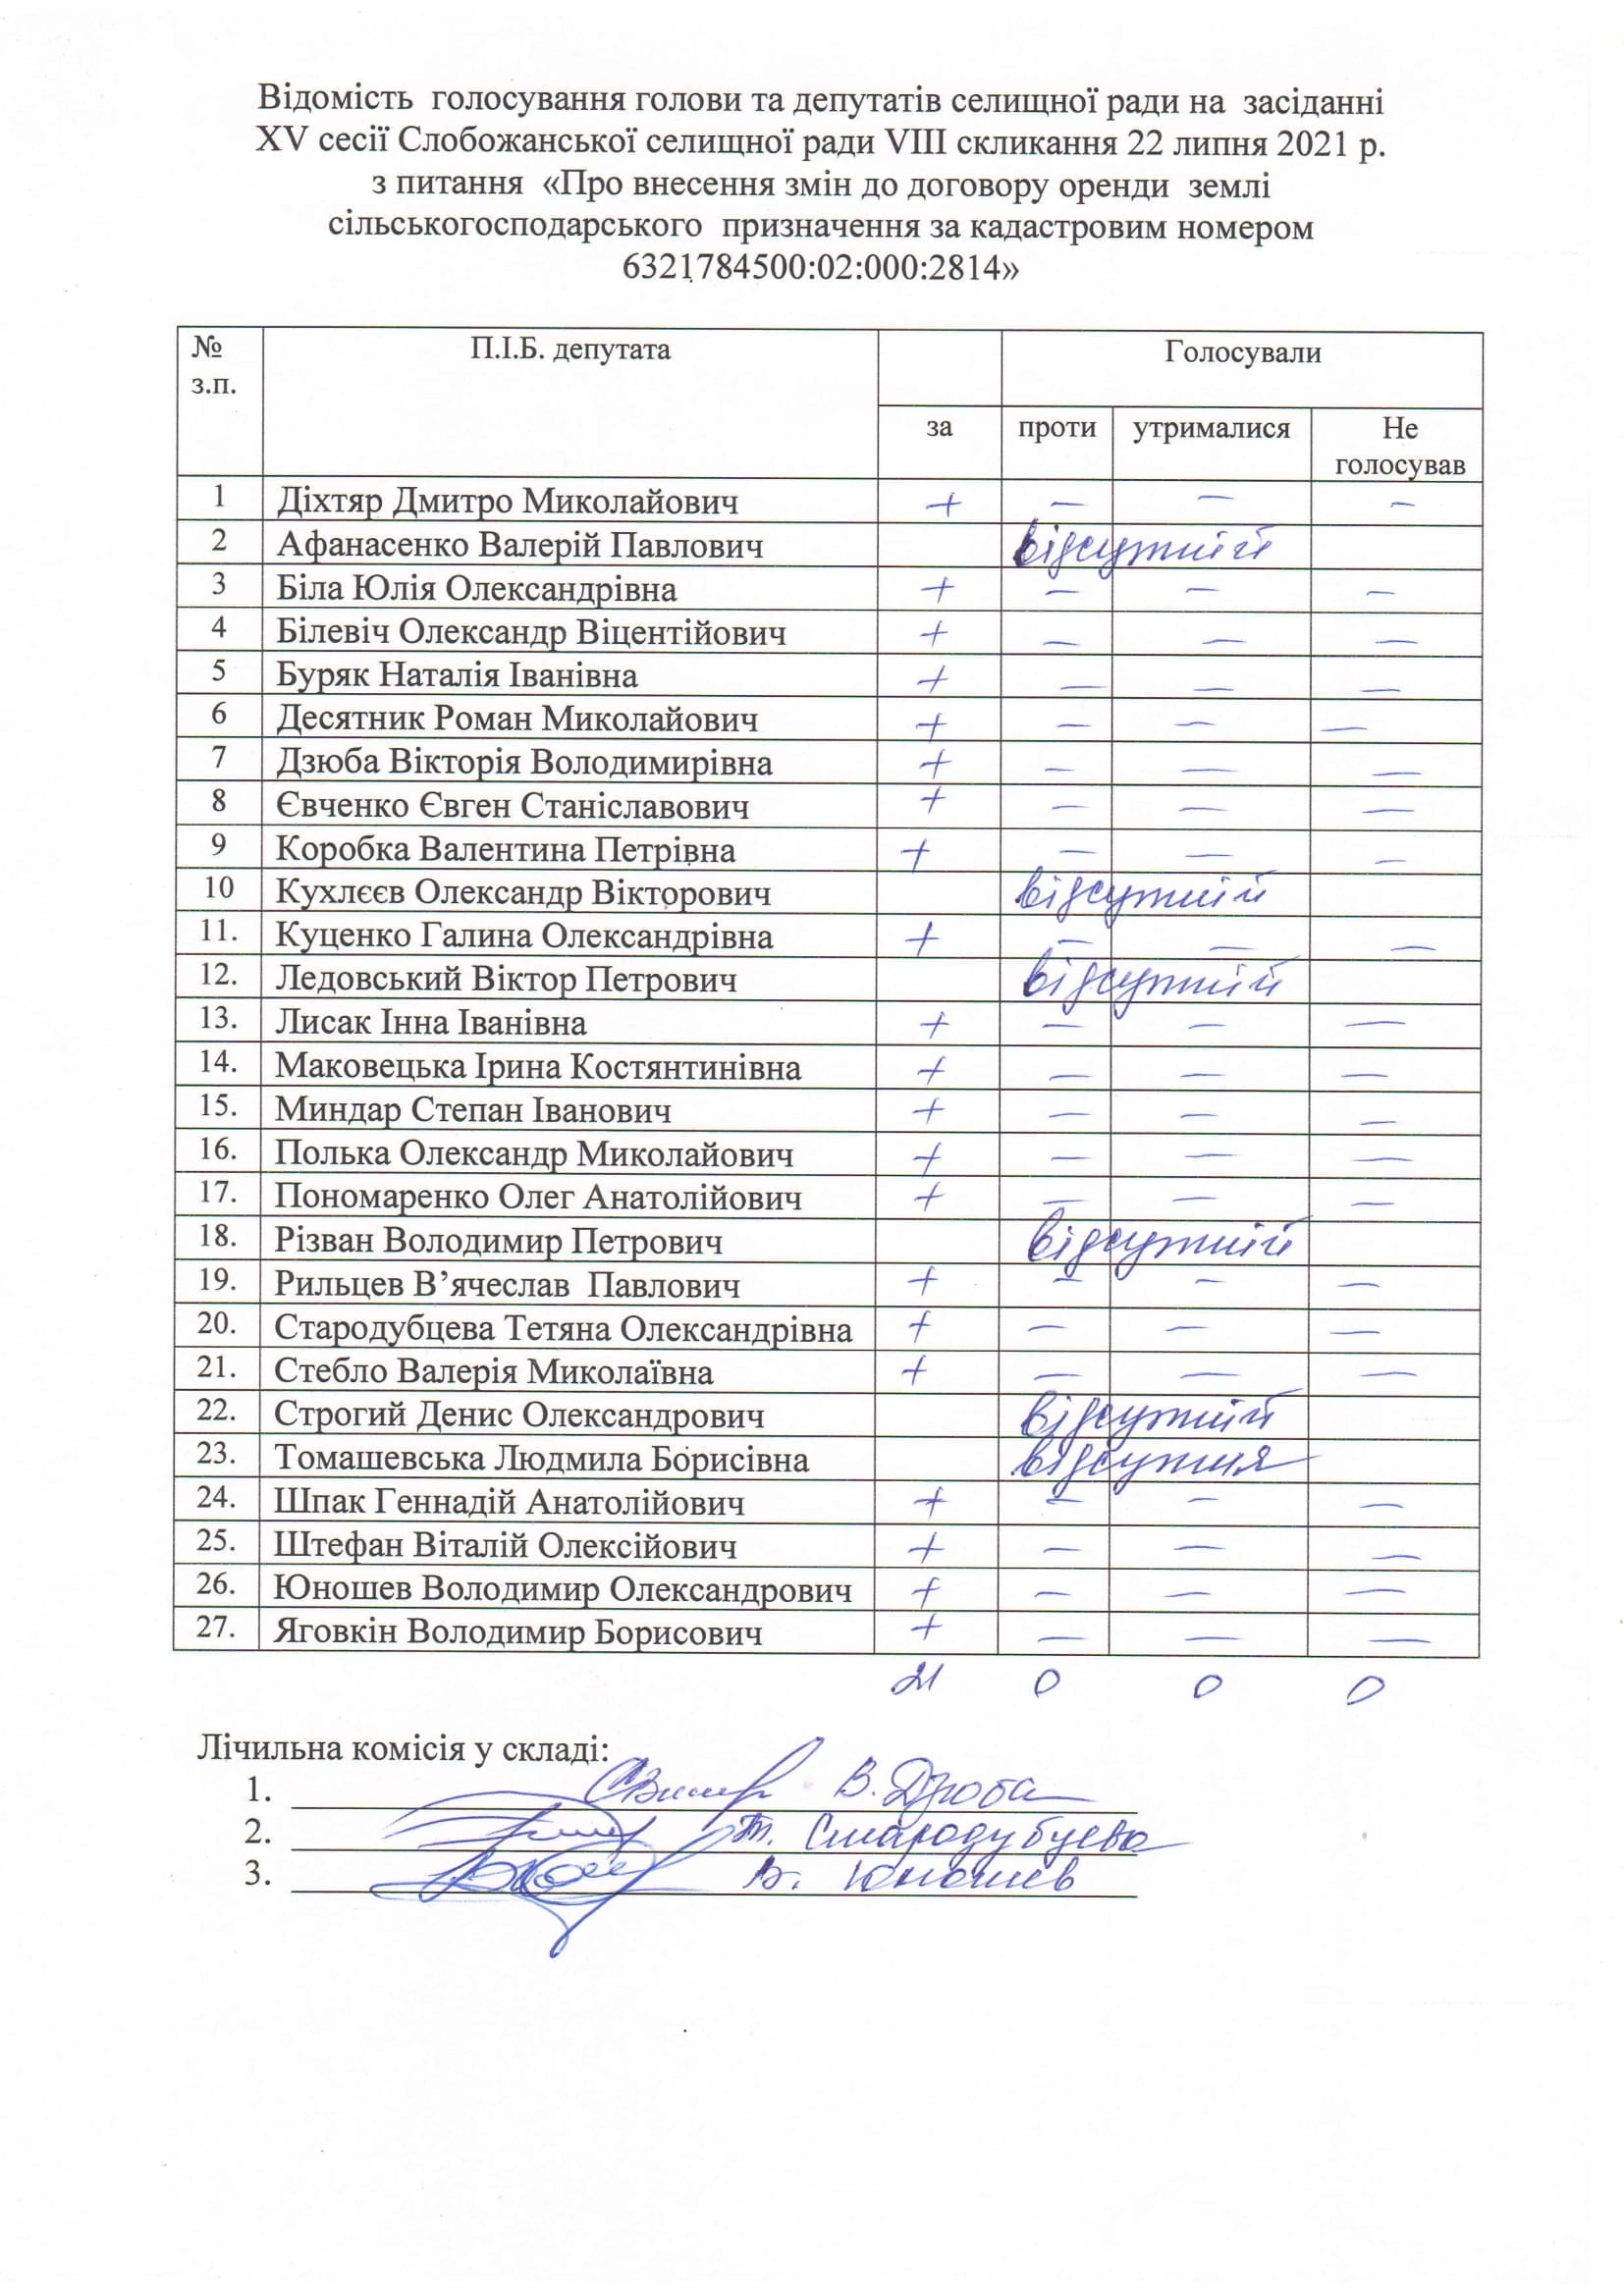 Відомість голосування голови та депутатів селищної ради на засіданні
XV сесії Слобожанської селищної ради VIII скликання 22 липня 2021 р.
з питання «Про внесення змін до договору оренди землі
сільськогосподарського призначення за кадастровим номером
6321784500:02:000:2814»
№ з.п. П.І.Б. депутата Голосували
за проти утрималися Не голосував
1 Діхтяр Дмитро Миколайович + — — —
2 Афанасенко Валерій Павлович відсутній
3 Біла Юлія Олександрівна + — — —
4 Білевіч Олександр Віцентійович + — — —
5 Буряк Наталія Іванівна + — — —
6 Десятник Роман Миколайович + — — —
7 Дзюба Вікторія Володимирівна + — — —
8 Євченко Євген Станіславович + — — —
9 Коробка Валентина Петрівна + — — —
10 Кухлєєв Олександр Вікторович відсутній
11. Куценко Галина Олександрівна + — — —
12. Ледовський Віктор Петрович відсутній
13. Лисак Інна Іванівна + — — —
14. Маковецька Ірина Костянтинівна + — — —
15. Миндар Степан Іванович + — — —
16. Полька Олександр Миколайович + — — —
17. Пономаренко Олег Анатолійович + — — —
18. Різван Володимир Петрович відсутній
19. Рильцев В’ячеслав Павлович + — — —
20. Стародубцева Тетяна Олександрівна + — — —
21. Стебло Валерія Миколаївна + — — —
22. Строгий Денис Олександрович відсутній
23. Томашевська Людмила Борисівна відсутня
24. Шпак Геннадій Анатолійович + — — —
25. Штефан Віталій Олексійович + — — —
26. Юношев Володимир Олександрович + — — —
27. Яговкін Володимир Борисович + — — —
21 0 0 0
Лічильна комісія у складі:
1. В. Дзюба
2. Т. Стародубцева
3. В. Юношев